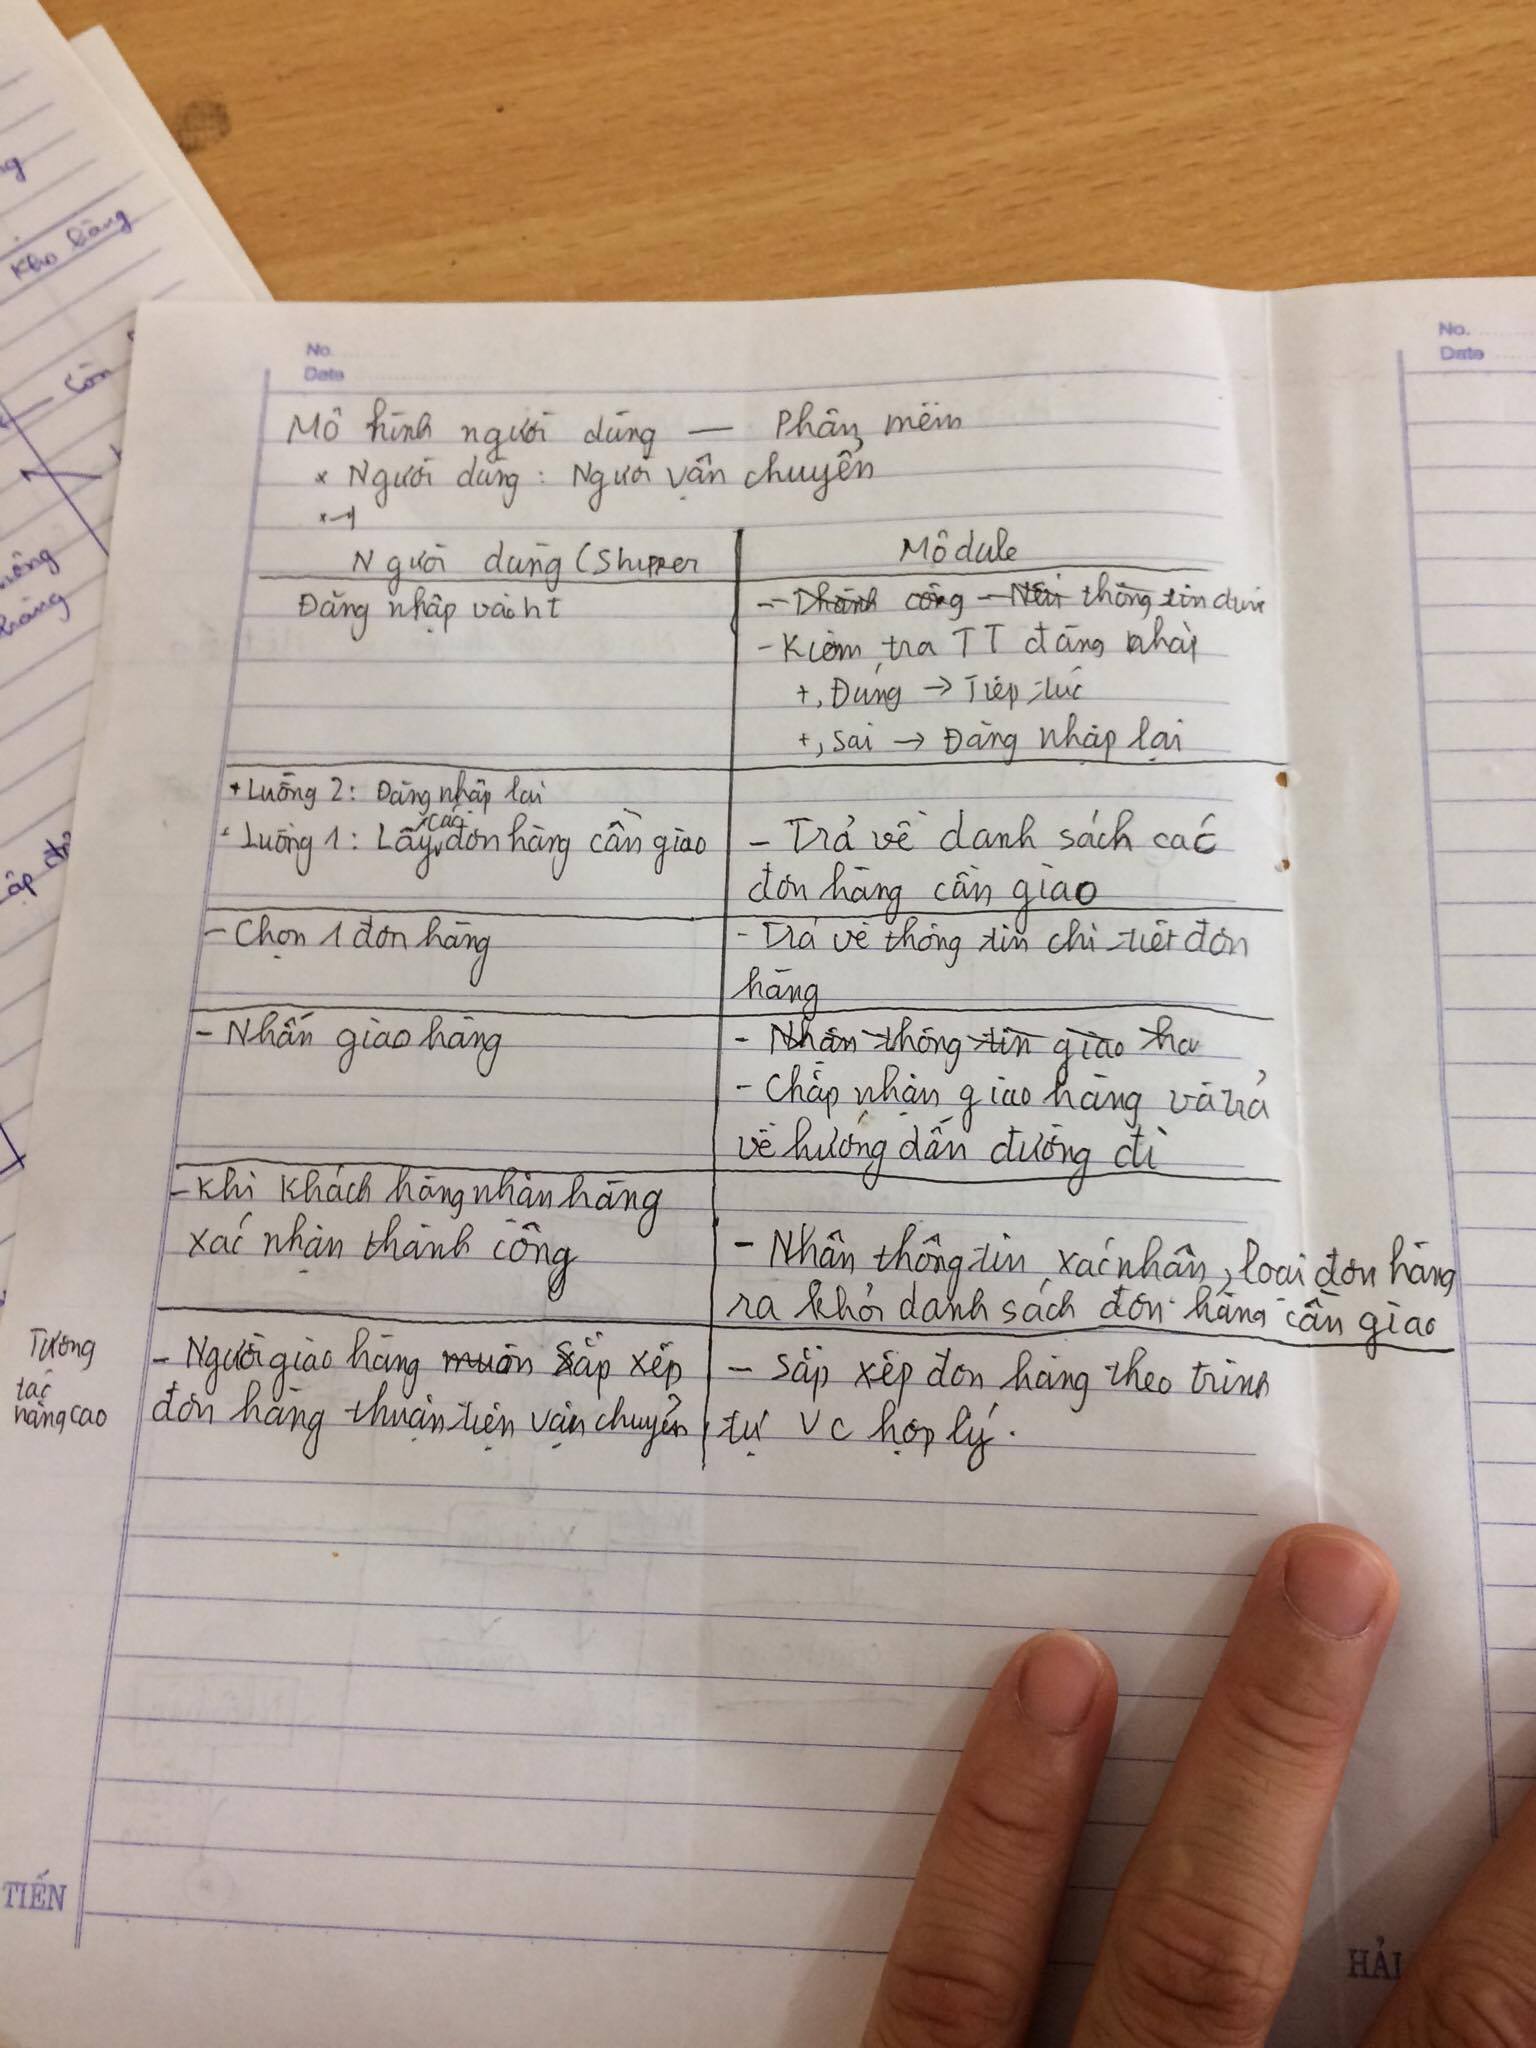 No.
Date
Mô hình người dùng — Phần mềm
* Người dùng : Người vận chuyển
Người dùng (Shipper
Module
Đăng nhập vào ht
thông tin
- Kiểm tra TT đăng nhập
+, Đúng → Tiếp tục
+, Sai → Đăng nhập lại
+ Luồng 2: Đăng nhập lại
Luồng 1: Lấy các đơn hàng cần giao
- Trả về danh sách các
đơn hàng cần giao
- Chọn 1 đơn hàng
- Trả về thông tin chi tiết đơn
hàng
- Nhấn giao hàng
- Nhận thông tin giao ha
- Chấp nhận giao hàng và trả
về hướng dẫn đường đi
- Khi khách hàng nhận hàng
xác nhận thành công
- Nhận thông tin xác nhận, loại đơn hàng
ra khỏi danh sách đơn hàng cần giao
Tương
tác
nâng cao
- Người giao hàng muốn sắp xếp
đơn hàng thuận tiện vận chuyển
- Sắp xếp đơn hàng theo trình
tự VC hợp lý.
TIẾN
No.
Date
HẢI
Kho hàng